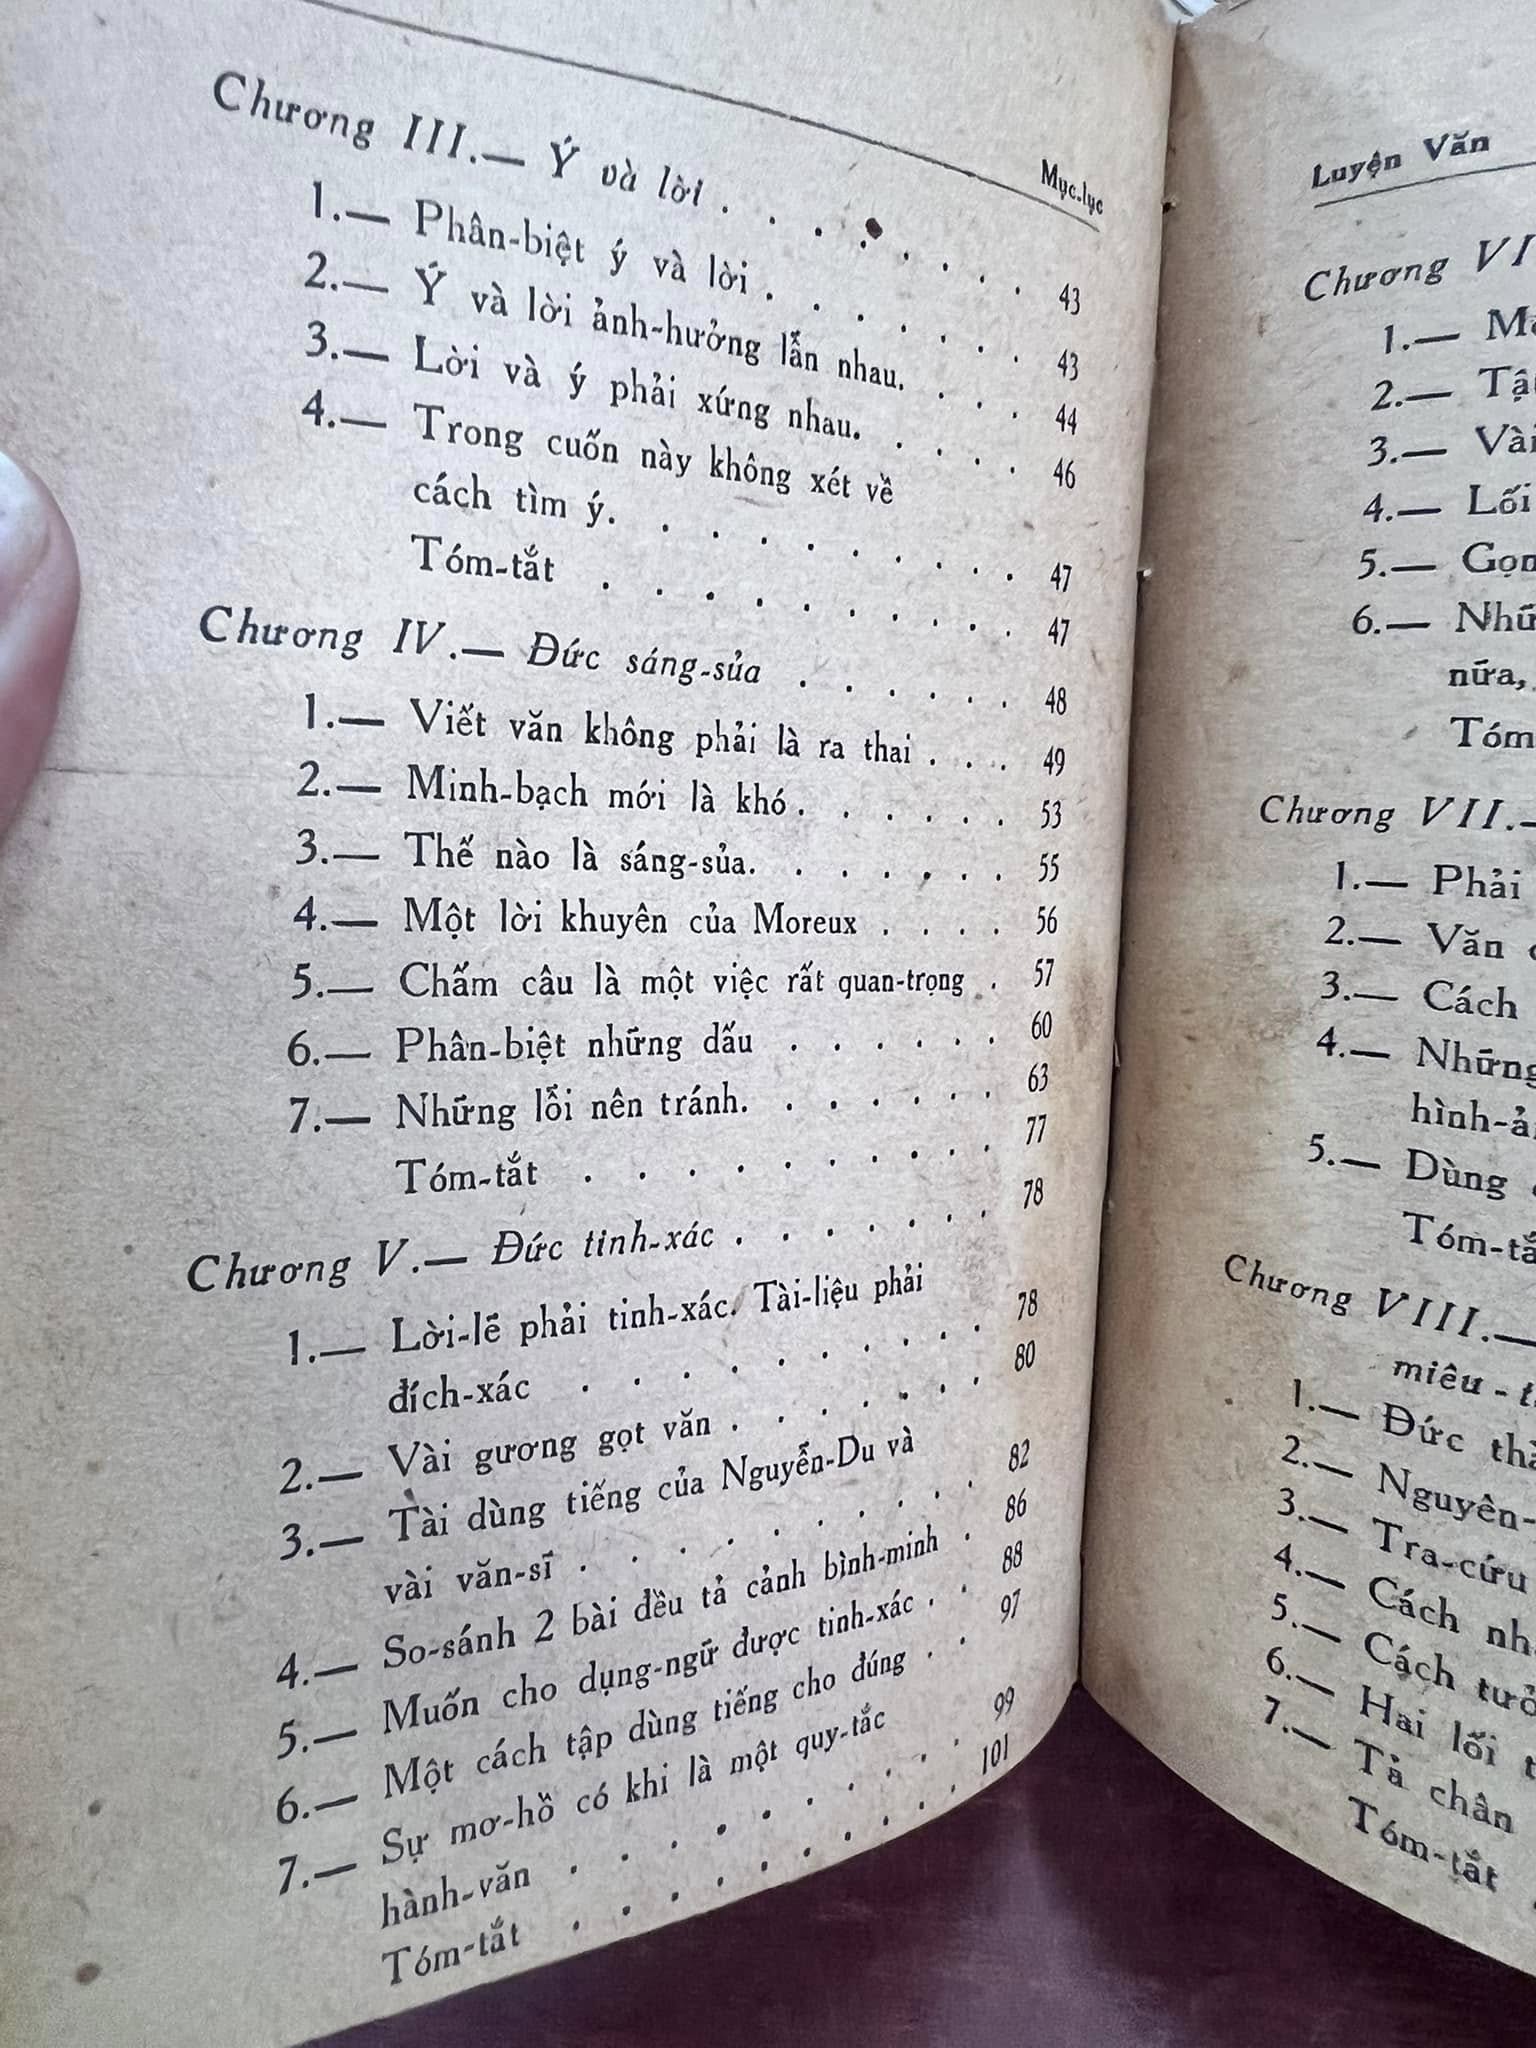 Mục-lục
Chương III.— Ý và lời . . . . . . . 43
1.— Phân-biệt ý và lời . . . . . . . 43
2.— Ý và lời ảnh-hưởng lẫn nhau. . . . 44
3.— Lời và ý phải xứng nhau. . . . . 46
4.— Trong cuốn này không xét về
cách tìm ý. . . . . . . . . 47
Tóm-tắt . . . . . . . . . 47
Chương IV.— Đức sáng-sủa . . . . . 48
1.— Viết văn không phải là ra thai . . . 49
2.— Minh-bạch mới là khó . . . . . . 53
3.— Thế nào là sáng-sủa. . . . . . . 55
4.— Một lời khuyên của Moreux . . . . 56
5.— Chấm câu là một việc rất quan-trọng . 57
6.— Phân-biệt những dấu . . . . . . 60
7.— Những lỗi nên tránh. . . . . . . 63
Tóm-tắt . . . . . . . . . 77
Chương V.— Đức tinh-xác . . . . . . . 78
1.— Lời-lẽ phải tinh-xác. Tài-liệu phải
đích-xác . . . . . . . . . 78
2.— Vài gương gọt văn . . . . . . . 80
3.— Tài dùng tiếng của Nguyễn-Du và
vài văn-sĩ . . . . . . . . . 82
4.— So-sánh 2 bài đều tả cảnh bình-minh . 86
5.— Muốn cho dụng-ngữ được tinh-xác . . 88
6.— Một cách tập dùng tiếng cho đúng . . 97
7.— Sự mơ-hồ có khi là một quy-tắc
hành-văn . . . . . . . . . 99
Tóm-tắt . . . . . . . . . 101
Luyện Văn
Chương VI
1.—
2.—
3.— Vài
4.— Lối
5.— Gọn
6.—
nữa,
Tóm
Chương VII.—
1.— Phải
2.— Văn
3.— Cách
4.— Những
hình-ả
5.— Dùng
Tóm-tắ
Chương VIII.—
miêu-t
1.— Đức
2.— Nguyên-
3.— Tra-cứu
4.— Cách
5.— Cách
6.— Hai lối
7.— Tả chân
Tóm-tắt